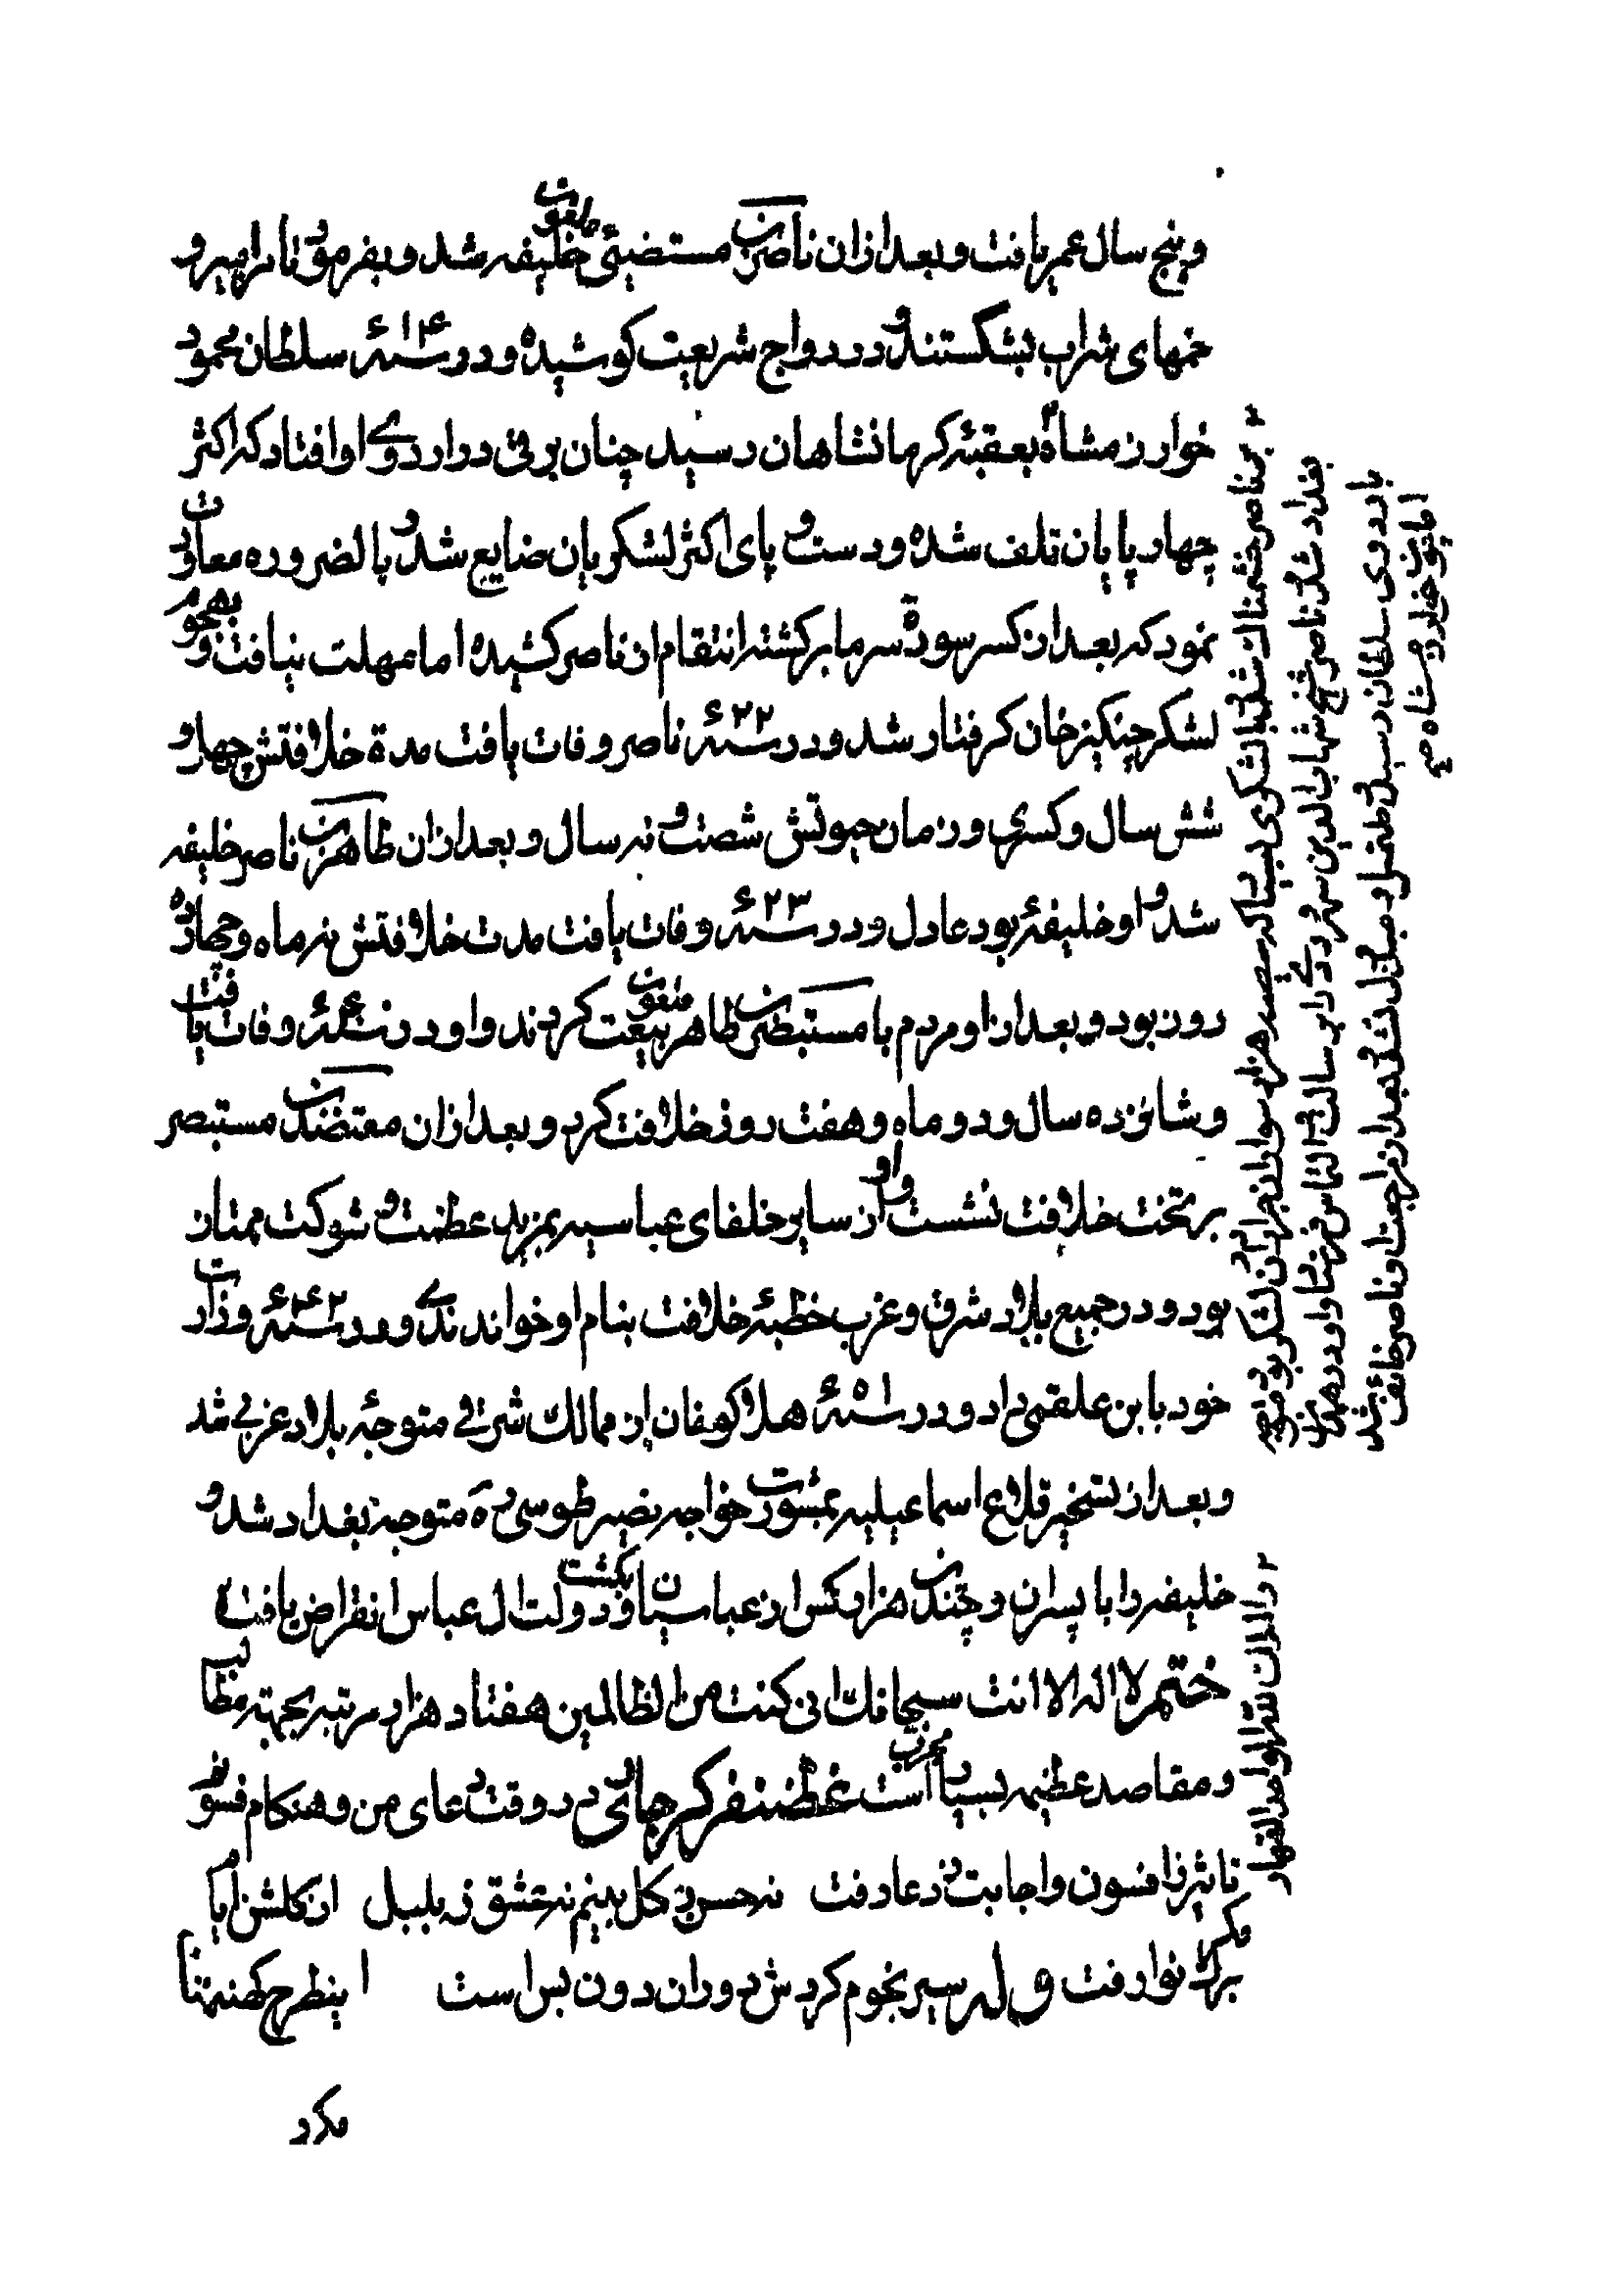 و پنج سال عمر یافت و بعد ازان ناصر بن مستضیئ خلیفه شد و بفرمود تا برامیرو
خمهای شراب بشکستند و در رواج شریعت کوشیده و در سنهٔ ۶۱۴ سلطان محمود
خوارزمشاه بعقبهٔ کرمانشاهان رسید چنان برفی در اردوی او افتاد که اکثر
چهارپایان تلف شده و دست و پای اکثر لشکریان ضایع شد و بالضروره معاودت
نمود که بعد از کسر سورة سرما برکشته انتقام از ناصر کشیده اما مهلت نیافت و بهجوم
لشکر چنکیز خان کرفتار شد و در سنهٔ ۶۲۲ ناصر وفات یافت مدة خلافتش چهل و
شش سال و کسری و زمان حیوتش شصت و نه سال و بعد ازان ظاهر بن ناصر خلیفه
شد و او خلیفهٔ بود عادل و در سنهٔ ۶۲۳ وفات یافت مدت خلافتش نه ماه و چهارده
روز بود و بعد از او مردم با مستبطر بن ظاهر بیعت کردند و او در سنهٔ ۶۴۰ وفات یافت
و شانزده سال و دو ماه و هفت روز خلافت کرد و بعد ازان معتضد بن مستبصر
بر تخت خلافت نشست و او از سایر خلفای عباسیه بمزید عظمت و شوکت ممتاز
بود و در جمیع بلاد شرق و غرب خطبهٔ خلافت بنام او خواندندی و در سنهٔ ۶۴۲ وزارت
خود بابن علقمی داد و در سنهٔ ۶۵۱ هلاکوخان از ممالک شرقی متوجهٔ بلاد غربی شد
و بعد از تسخیر قلاع اسماعیلیه بمشورت خواجه نصیر طوسی ره متوجه بغداد شد و
خلیفه را با پسران و چندین هزار کس از عباسیان بکشت و دولت ال عباس انقراض یافت
ختم لا اله الا انت سبحانک انی کنت من الظالمین هفتاد هزار مرتبه بجهته مطالب
و مقاصد عظیمه بسیار مجرب است غضنفر کرجاتی در وقت دعای من و هنکام فسون
تاثیر ز افسون و اجابت ز دعا رفت نه حسن ز کل بینم نه عشق ز بلبل از کلشن ایام
مکر برک و نوا رفت وله سیر نجوم کردش دوران دون بس است اینطرح کهنه تا
مکرد
۲ ناصر خشمناک شد با لشکری بسیار که سیصد هزار سوار از جرار آن لشکر بود متوجه
بغداد شد ناصر شیخ شهاب الدین سهروردی را برسالت و التماس فرستاد و او در همدان
باردوی سلطان رسید بعد از مراجعت او ناصر خائف شد
اما چون خوارزمشاه
۲ و الملک لله الواحد القهار